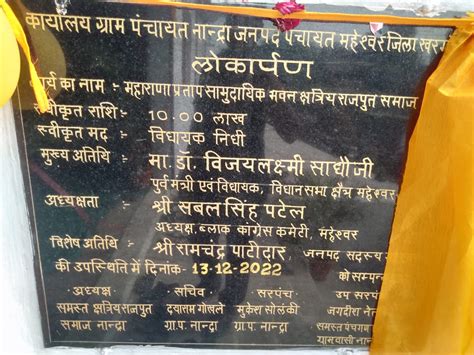 कार्यालय ग्राम पंचायत नान्द्रा जनपद पंचायत महेश्वर जिला
लोकार्पण
कार्य का नाम :- महाराणा प्रताप सामुदायिक भवन क्षत्रिय राजपूत समाज
स्वीकृत राशि :- 10.00 लाख
स्वीकृत मद :- विधायक निधी
मुख्य अतिथि :- मा. डॉ. विजयलक्ष्मी साधौजी
पुर्व मंत्री एवं विधायक, विधान सभा क्षैत्र महेश्वर
अध्यक्षता :- श्री सबल सिंह पटेल
अध्यक्ष, ब्लाक कांग्रेस कमेटी, महेश्वर
विशेष अतिथि :- श्री रामचंद्र पाटीदार, जनपद सदस्य
की उपस्थिति में दिनांक- 13-12-2022 को सम्पन्न
अध्यक्ष सचिव सरपंच उप सरपंच
समस्त क्षत्रिय राजपुत दयाराम गोखले मुकेश सोलंकी जगदीश
समाज नान्द्रा ग्रा.पं. नान्द्रा ग्रा.पं. नान्द्रा समस्त
ग्रामवासी